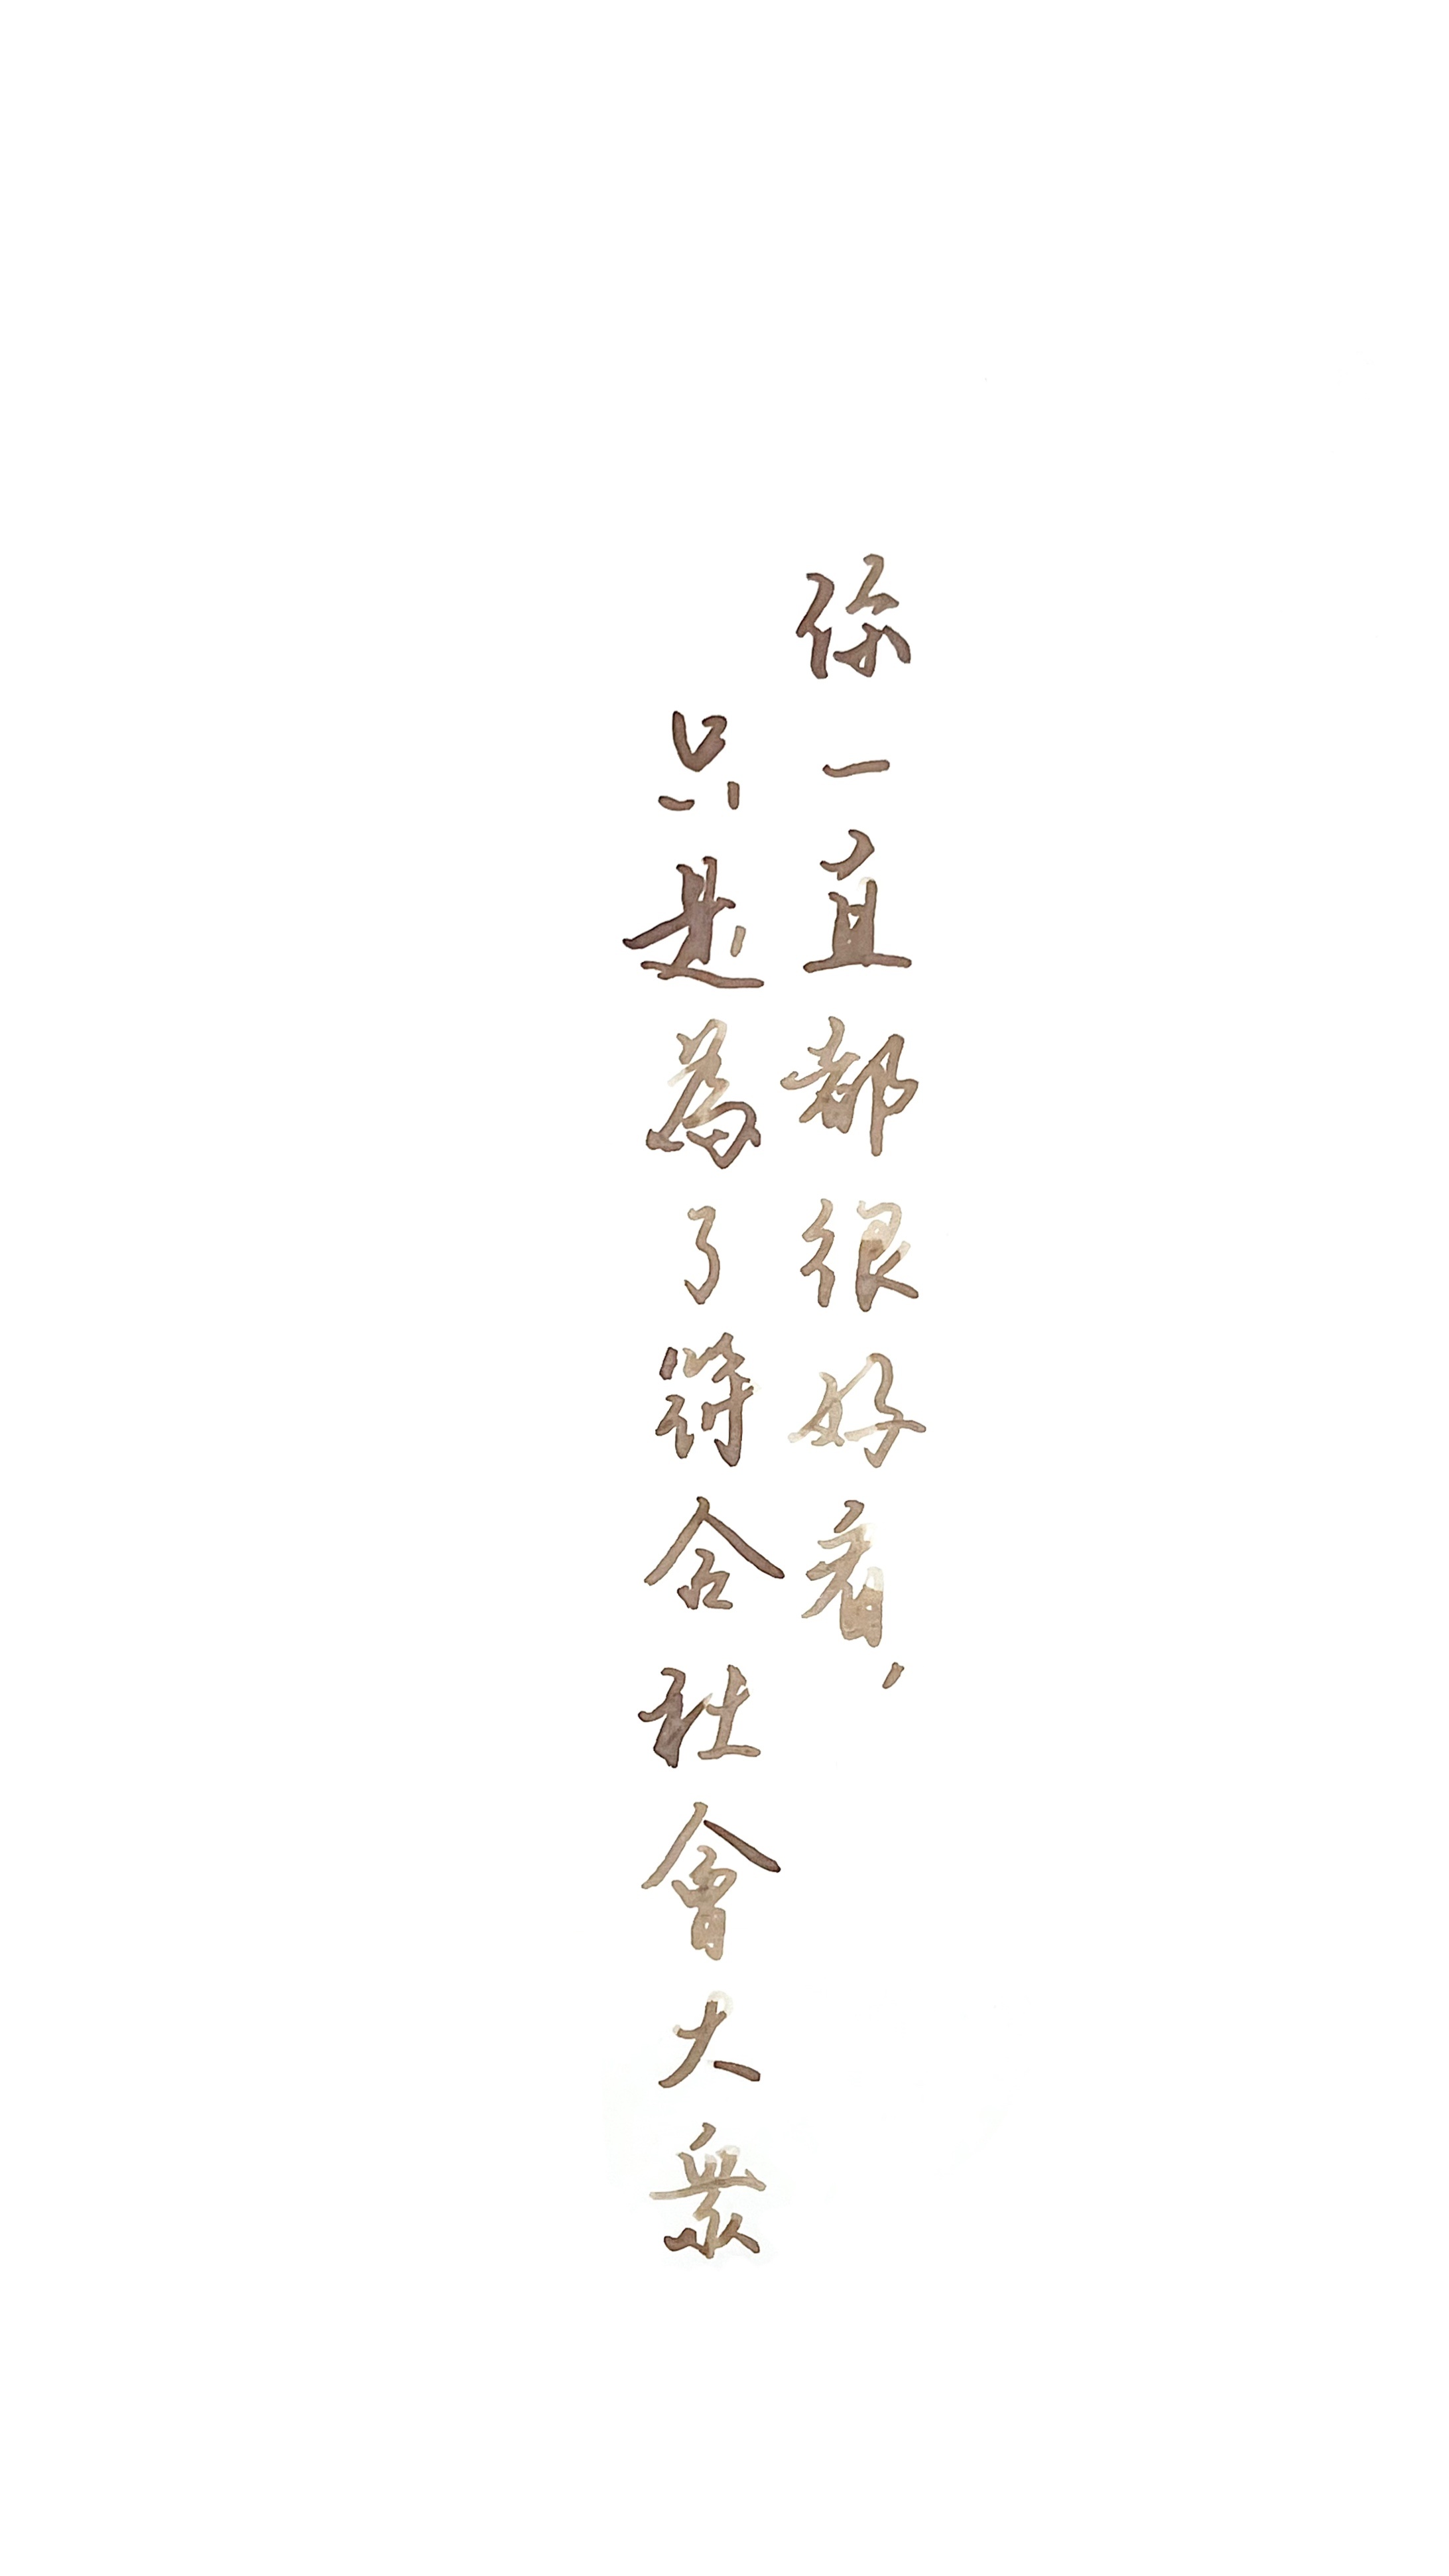 你一直都很好看，
只是為了符合社會大眾